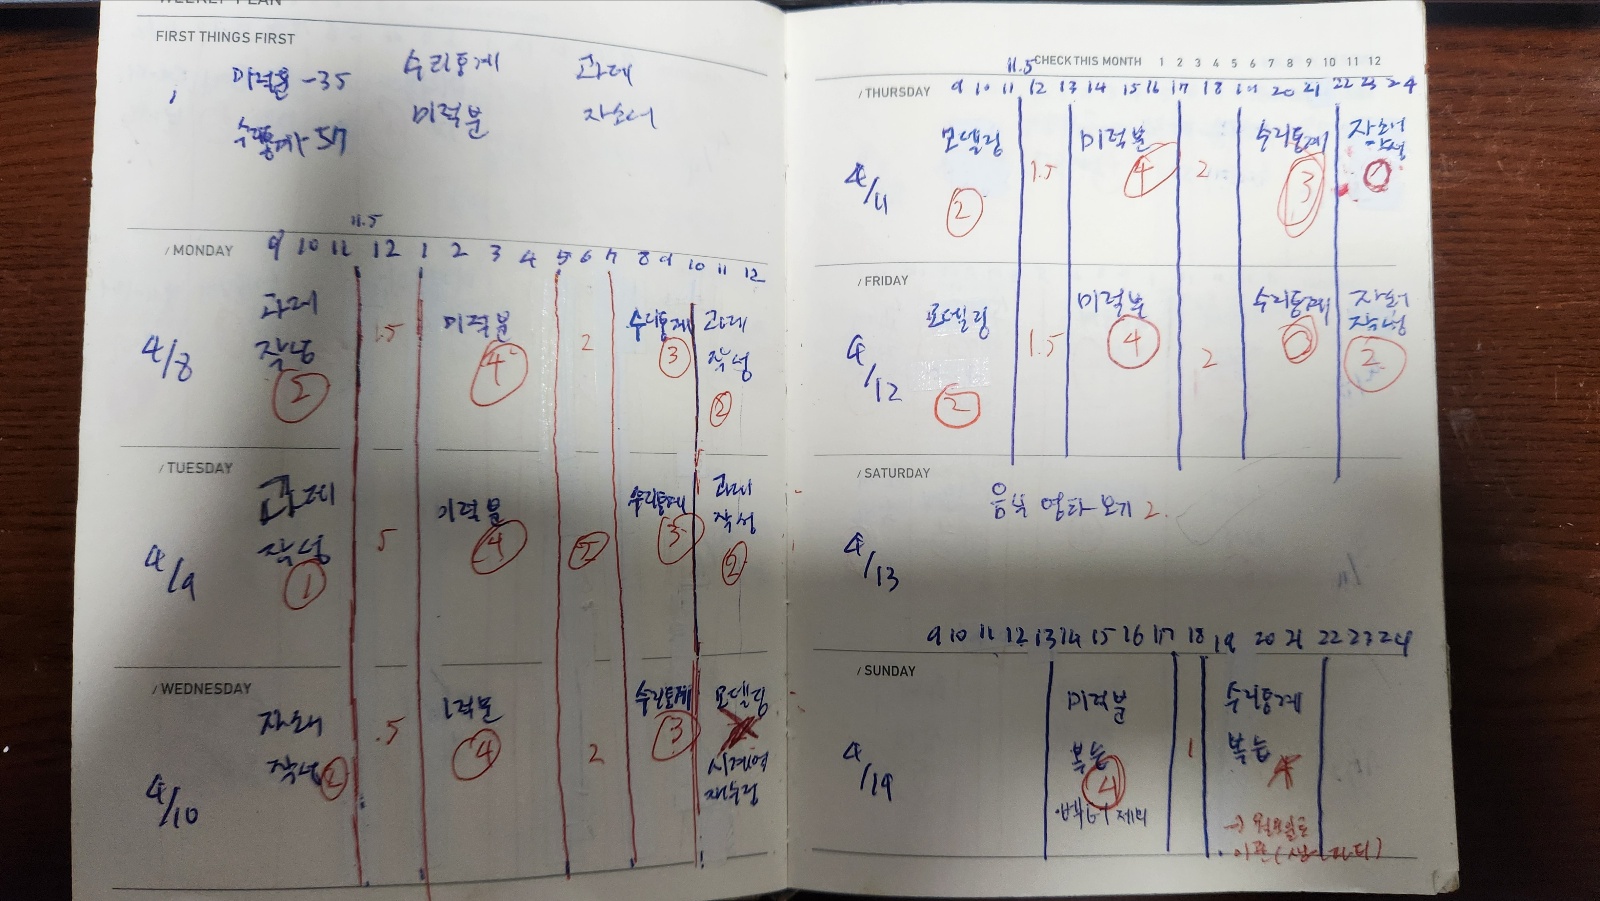 WEEKLY PLAN
FIRST THINGS FIRST
미적분 -35 수리통계 과제
미적분 자소서
11.5
/ MONDAY 9 10 11 12 1 2 3 4 5 6 7 8 9 10 11 12
4/8
과제 미적분 수리통계 과제
작성 1.5 2 작성
② ④ ③ ②
/ TUESDAY
4/9
과제 미적분 수리통계 과제
작성 5 작성
① ④ ② ③ ②
/ WEDNESDAY
4/10
자소서 적분 수리통계 모델링
작성 ② .5 ④ 2 ③
시계열
재수강
11.5 CHECK THIS MONTH 1 2 3 4 5 6 7 8 9 10 11 12
/ THURSDAY 9 10 11 12 13 14 15 16 17 18 19 20 21 22 23 24
4/11
모델링 미적분 수리통계 자소서
작성
② 1.5 ④ 2 ③
/ FRIDAY
4/12
모델링 미적분 수리통계 자소서
작성
② 1.5 ④ 2 ②
/ SATURDAY
4/13
영화보기 2.
9 10 11 12 13 14 15 16 17 18 19 20 21 22 23 24
/ SUNDAY
4/14
미적분 수리통계
복습 1 복습
④
제외
→ 월요일로